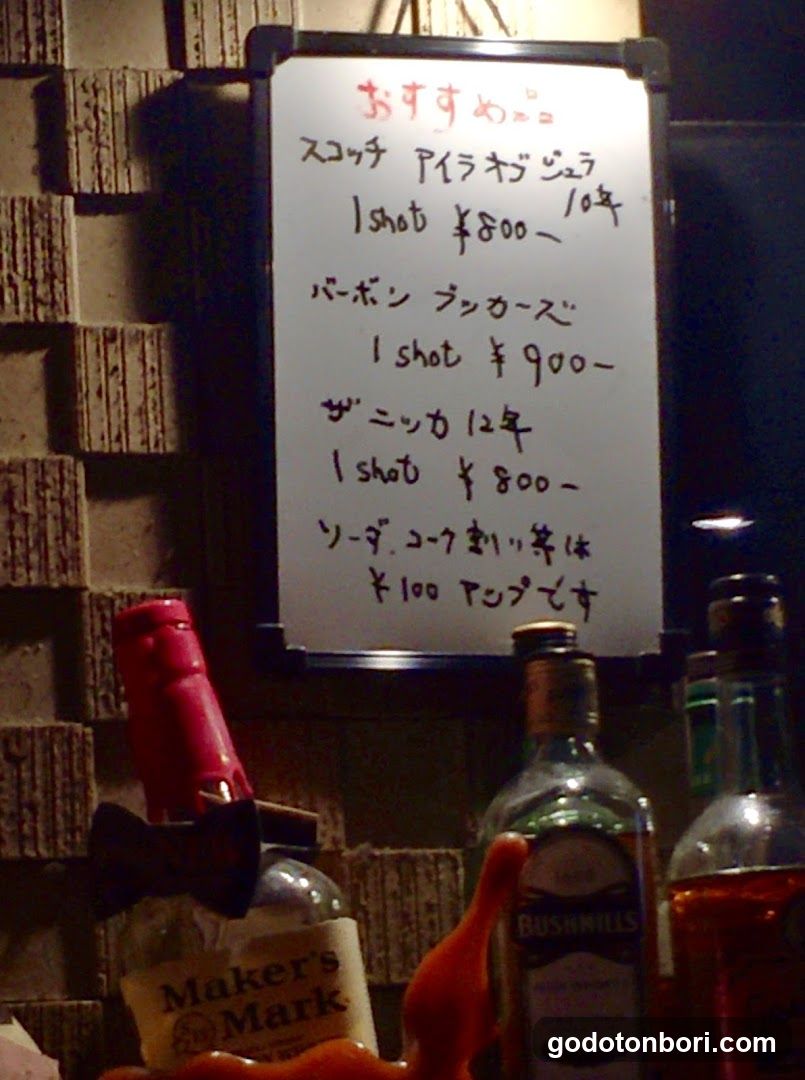 おすすめ品
スコッチ アイラオブジュラ
10年
1shot ¥800-
バーボン ブッカーズ
1shot ¥900-
ザニッカ12年
1shot ¥800-
ソーダ、コーク割り等は
¥100アップです
Maker's
Mark
BUSHMILLS
godotonbori.com